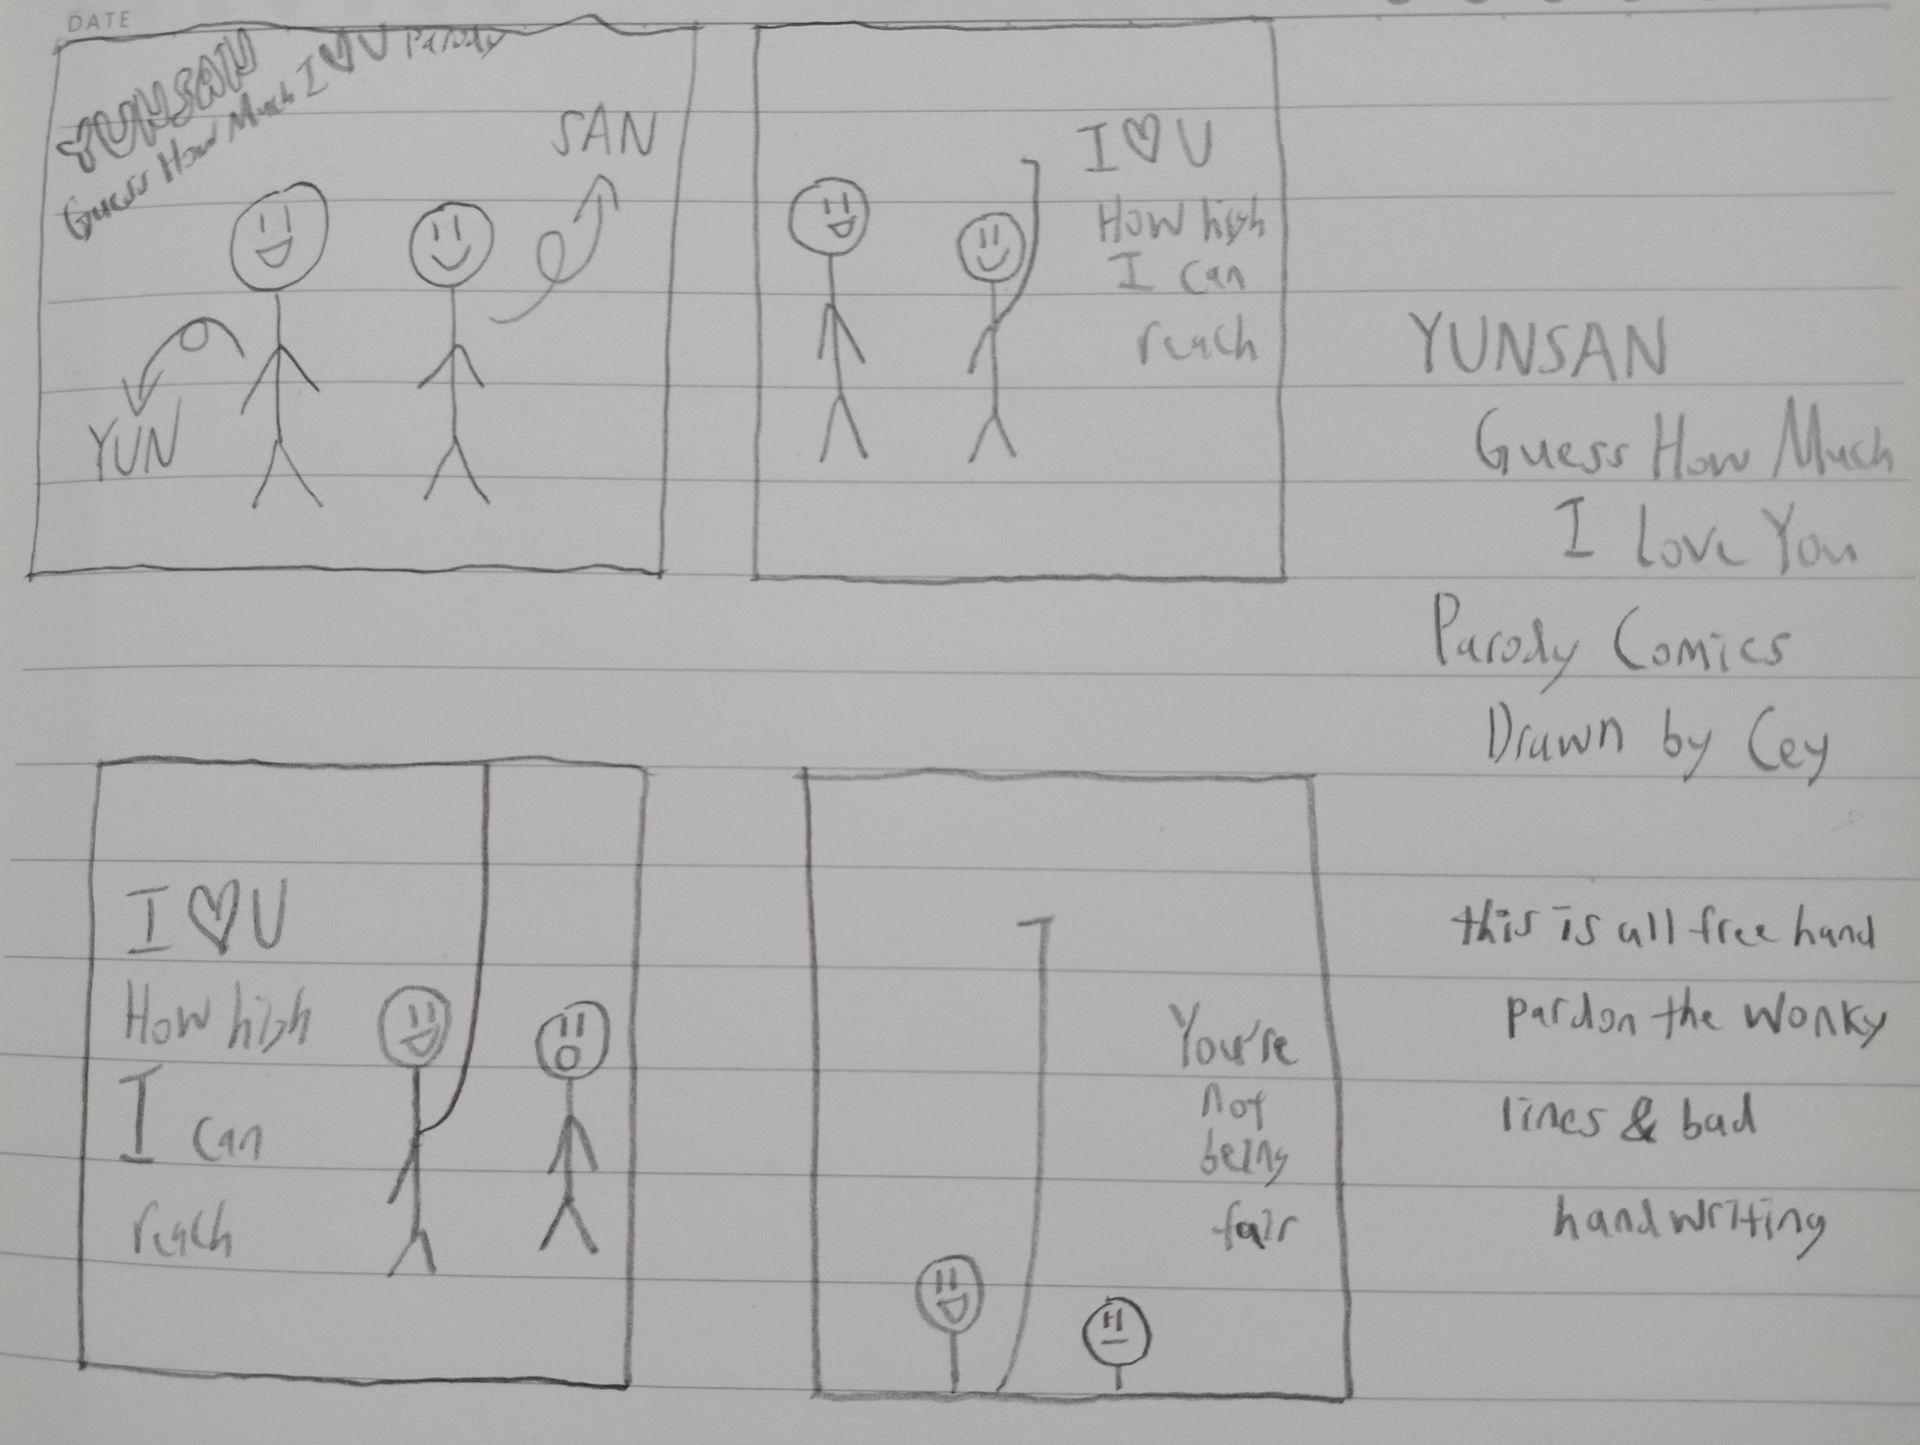 DATE
YUNSAN
Guess How Much I ♡ U Parody
SAN
YUN
I ♡ U
How high
I can
reach
YUNSAN
Guess How Much
I Love You
Parody Comics
Drawn by Cey
I ♡ U
How high
I can
reach
You're
not
being
fair
this is all free hand
pardon the wonky
lines & bad
handwriting